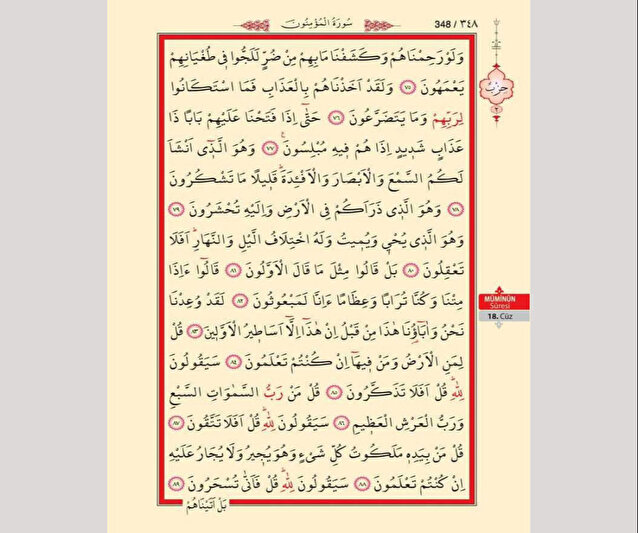 348 / ٣٤٨
سُورَةُ الْمُؤْمِنُونَ
وَلَوْ رَحِمْنَاهُمْ وَكَشَفْنَا مَا بِهِمْ مِنْ ضُرٍّ لَلَجُّوا فِى طُغْيَانِهِمْ
يَعْمَهُونَ ﴿٧٥﴾ وَلَقَدْ اَخَذْنَاهُمْ بِالْعَذَابِ فَمَا اسْتَكَانُوا
لِرَبِّهِمْ وَمَا يَتَضَرَّعُونَ ﴿٧٦﴾ حَتّٰٓى اِذَا فَتَحْنَا عَلَيْهِمْ بَابًا ذَا
عَذَابٍ شَدِيدٍ اِذَا هُمْ فِيهِ مُبْلِسُونَ ﴿٧٧﴾ وَهُوَ الَّذِٓى اَنْشَاَ
لَكُمُ السَّمْعَ وَالْاَبْصَارَ وَالْاَفْئِدَةَ قَلِيلًا مَا تَشْكُرُونَ
﴿٧٨﴾ وَهُوَ الَّذِى ذَرَاَكُمْ فِى الْاَرْضِ وَاِلَيْهِ تُحْشَرُونَ ﴿٧٩﴾
وَهُوَ الَّذِى يُحْيِى وَيُمِيتُ وَلَهُ اخْتِلَافُ الَّيْلِ وَالنَّهَارِ اَفَلَا
تَعْقِلُونَ ﴿٨٠﴾ بَلْ قَالُوا مِثْلَ مَا قَالَ الْاَوَّلُونَ ﴿٨١﴾ قَالُٓوا ءَاِذَا
مِتْنَا وَكُنَّا تُرَابًا وَعِظَامًا ءَاِنَّا لَمَبْعُوثُونَ ﴿٨٢﴾ لَقَدْ وُعِدْنَا
نَحْنُ وَاٰبَٓاؤُ۬نَا هٰذَا مِنْ قَبْلُ اِنْ هٰذَٓا اِلَّٓا اَسَاطِيرُ الْاَوَّلِينَ ﴿٨٣﴾ قُلْ
لِمَنِ الْاَرْضُ وَمَنْ فِيهَٓا اِنْ كُنْتُمْ تَعْلَمُونَ ﴿٨٤﴾ سَيَقُولُونَ
لِلّٰهِ قُلْ اَفَلَا تَذَكَّرُونَ ﴿٨٥﴾ قُلْ مَنْ رَبُّ السَّمٰوَاتِ السَّبْعِ
وَرَبُّ الْعَرْشِ الْعَظِيمِ ﴿٨٦﴾ سَيَقُولُونَ لِلّٰهِ قُلْ اَفَلَا تَتَّقُونَ ﴿٨٧﴾
قُلْ مَنْ بِيَدِهِ مَلَكُوتُ كُلِّ شَىْءٍ وَهُوَ يُجِيرُ وَلَا يُجَارُ عَلَيْهِ
اِنْ كُنْتُمْ تَعْلَمُونَ ﴿٨٨﴾ سَيَقُولُونَ لِلّٰهِ قُلْ فَاَنّٰى تُسْحَرُونَ ﴿٨٩﴾
بَلْ اَتَيْنَاهُمْ
حزب
٢
MÜMİNÜN
Sûresi
18. Cüz